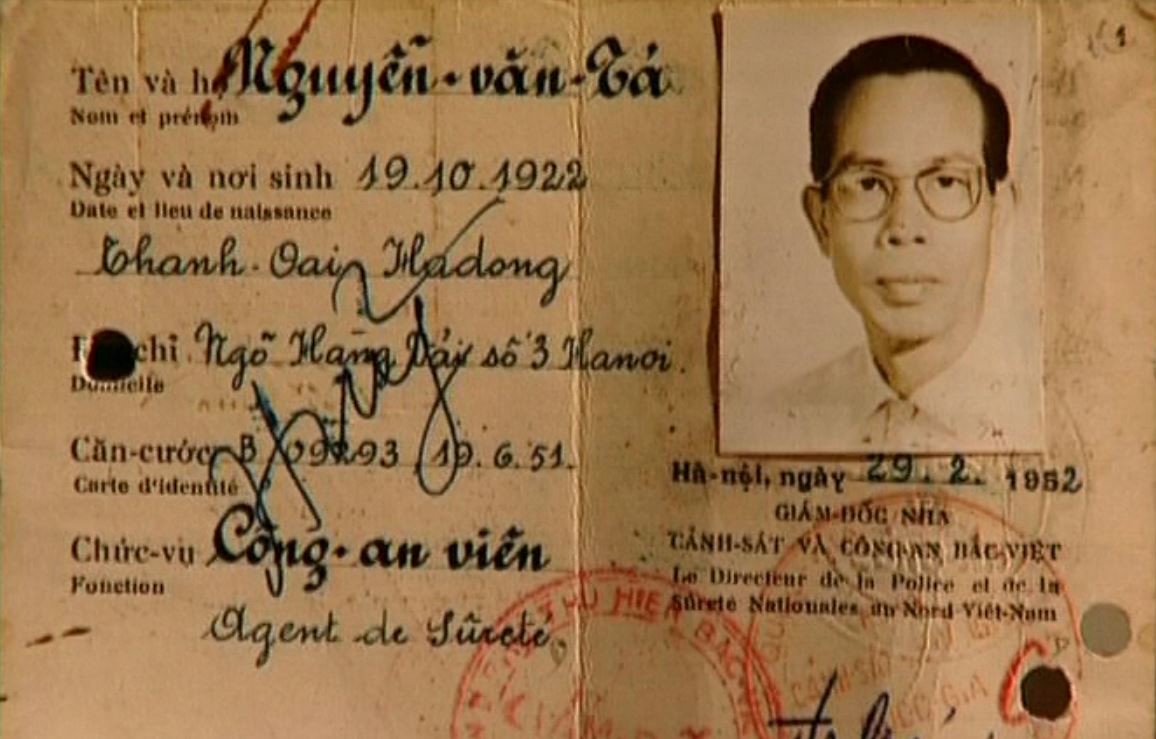 Tên và họ Nguyễn-văn-Tá
Nom et prénom
Ngày và nơi sinh 19.10.1922
Date et lieu de naissance
Thanh-Oai Hadong
chỉ Ngõ Hàng số 3 Hanoi.
Domicile
Căn-cước B 19.6.51.
Carte d'identité
Chức-vụ Công-an viên
Fonction
Agent de Sûreté.
Hà-nội, ngày 29.2.1952
GIÁM-ĐỐC NHA
CẢNH-SÁT VÀ CÔNG-AN BẮC-VIỆT
Le Directeur de la Police et de la
Sûreté Nationales au Nord Viêt-Nam